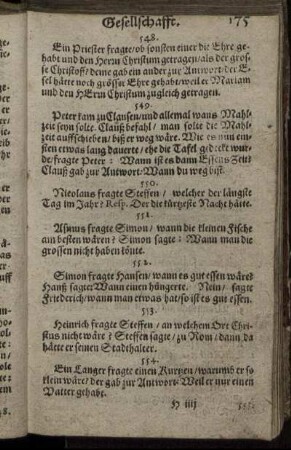 Gesellschafft. 175
548.
Ein Priester fragte / ob sonsten einer die Ehre ge-
habt und den Herrn Christum getragen / als der gros-
se Christoff / deme gab ein ander zur Antwort: der E-
sel hätte noch grösser Ehre gehabt / weil er Mariam
und den HErrn Christum zugleich getragen.
549.
Peter kam zu Clausen / und allemal wans Mahl-
zeit seyn solte. Clauß befahl / man solte die Mahl-
zeit auffschieben / biß er weg wäre. Wie es nun mit
essen etwas lang dauerte / ehe die Tafel gedeckt wur-
de / fragte Peter: Wann ist es dann Essens Zeit?
Clauß gab zur Antwort: Wann du weg bist.
550.
Nicolaus fragte Steffen / welcher der längste
Tag im Jahr? Resp. Der die kürtzeste Nacht hätte.
551.
Asmus fragte Simon / wann die kleinen Fische
am besten wären? Simon sagte: Wann man die
grossen nicht haben könte.
552.
Simon fragte Hansen / wann es gut essen wäre?
Hanß sagte: Wann einen hüngerte. Nein / sagte
Friederich / wann man etwas hat / so ist es gut essen.
553.
Heinrich fragte Steffen / an welchem Ort Chri-
stus nicht wäre? Steffen sagte / zu Rom / dann da
hätte er seinen Stadthalter.
554.
Ein Langer fragte einen Kurtzen / warumb er so
klein wäre / der gab zur Antwort: Weil er nur einen
Vatter gehabt.
H iiij